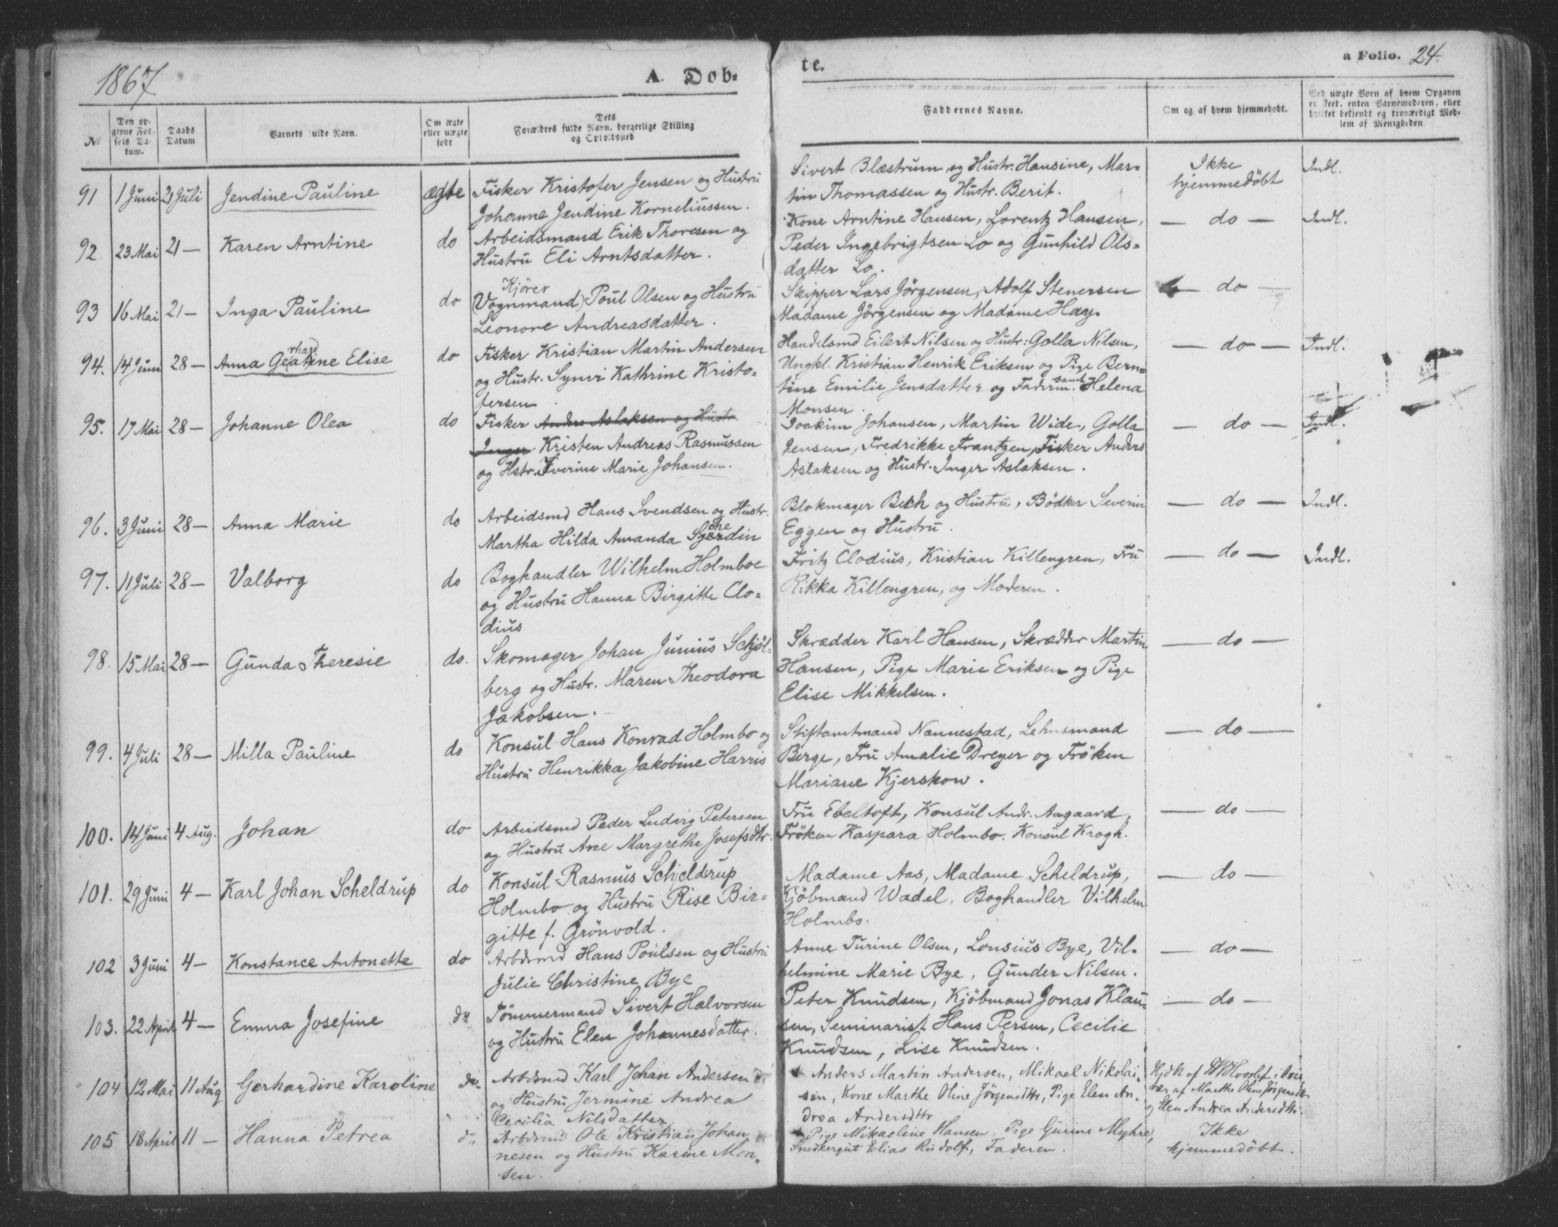 1867
A. Døb-
te.
a Folio. 24.
No
Den op-
givne Fød-
sels Da-
tum.
Daabs
Datum
Barnets fulde Navn.
Om ægte
eller uægte
født
Dets
Forældres fulde Navn, borgerlige Stilling
og Opholdssted
Faddernes Navne.
Om og af hvem hjemmedøbt.
Ved uægte Børn af hvem Opgaven
er skeet, enten Barnemoderen, eller
hvilket bekjendt og troværdigt Med-
lem af Menigheden.
91 1 Juni 21 Juli Jendine Pauline ægte Fisker Kristofer Jensen og Hustru
Johanna Jendine Korneliussen.
Sivert Blæstrum og Hustr. Hansine, Mar-
tin Thomassen og Hustr. Berit.
Ikke
hjemmedøbt
Indl.
92. 23 Mai 21 — Karen Arntine do Arbeidsmand Erik Thoresen og
Hustru Eli Arntsdatter.
Kone Arntine Hansen, Lorentz Hansen,
Peder Ingebrigtsen Lo og Gunhild Ols-
datter Lo.
— do — Indl.
93 16 Mai 21 — Inga Pauline do Vognmand Poul Olsen og Hustru
Kjører
Leonore Andreasdatter.
Skipper Lars Jörgensen, Adolf Stenersen
Madame Jörgensen og Madame Hag.
— do —
94. 14 Juni 28 — Anna Elise do Fisker Kristian Martin Andersen
og Hustr. Synvi Kathrine Kristo-
fersen
Handelsmd Eilert Nilsen og Hustr. Golla Nilsen,
Ungkl. Kristian Henrik Eriksen og Pige Bern-
tine Emilie Jensdatter og Faderen samt Helena
Monsen.
— do — Indl.
95. 17 Mai 28 — Johanne Olea do Fisker Anders Aslaksen og Hustr
Inger Kristen Andreas Rasmussen
og Hstr. Iverine Marie Johansen.
Joakim Johansen, Martin Wide, Golla
Jensen, Fredrikke Frantzen, Fisker Anders
Aslaksen og Hustr. Inger Aslaksen.
— do — Indl.
96. 3 Juni 28 — Anna Marie do Arbeidsmd Hans Svendsen og Hustr.
Martha Hilda Amanda
Blokmager Bech og Hustru, Bödker Severin
Eggen og Hustru.
— do — Indl.
97. 11 Juli 28 — Valborg do Boghandler Wilhelm Holmboe
og Hustru Hanna Birgitte Clo-
dius
Fritz Clodius, Kristian Killengren, Fru
Rikka Killengren, og Moderen.
— do — Indl.
98. 15 Mai 28 — Gunda Theresie do. Skomager Johan Junius Schjöl-
berg og Hustr. Maren Theodora
Jakobsen.
Skrædder Karl Hansen, Skrædder Martin
Hansen, Pige Marie Eriksen og Pige
Elise Mikkelsen.
— do —
99. 4 Juli 28 — Milla Pauline do Konsul Hans Konrad Holmbo og
Hustru Henrikka Jakobine Harris
Stiftamtmand Nannestad, Lehnsmand
Berge, Fru Amalie Dreyer og Fröken
Mariane Kjerskow.
— do —
100. 14 Juni 4 Aug. Johan do Arbeidsmd Peder Ludvig Petersen
og Hustru Ane Margrethe Josefsdtr.
Fru Ebeltoft, Konsul Andr. Aagaard,
Fröken Kaspara Holmbo. Konsul Krogh.
— do —
101. 29 Juni 4 — Karl Johan Scheldrup do Konsul Rasmus Scheldrup
Holmbo og Hustru Rise Bir-
gitte f. Grönvold.
Madame Aas, Madame Scheldrup,
Kjöbmand Wadel, Boghandler Vilhelm
Holmbo.
— do —
102 3 Juni 4 — Konstance Antonette do Arbdsmd Hans Poulsen og Hustru
Julie Christine Bye
Anne Turine Olsen, Lonsius Bye, Vil-
helmine Marie Bye, Gunder Nilsen.
— do —
103. 22 April 4 — Emma Josefine do. Tömmermand Sivert Halvorsen
og Hustru Elen Johannesdatter.
Peter Knudsen, Kjöbmand Jonas Klau-
sen, Seminarist Hans Persen, Cecilie
Knudsen, Lise Knudsen.
— do —
104 12 Mai 11 Aug Gerhardine Karoline do. Arbdsmd Karl Johan Andersen
og Hustru Jermine Andrea
Cecilia Nilsdatter
Anders Martin Andersen, Mikael Nikolai-
sen, Kone Marthe Oline Jörgensdtr, Pige Elen An-
drea Andersdtr
Hjdt af
af Marthe Olin Jörgensdtr
og Elen Andrea Andersdtr.
105 18 April 11 — Hanna Petrea do Arbdsmd Ole Kristian Johan-
nesen og Hustru Karine Mon-
sen.
Pige Mikaeline Hansen, Pige Gurine Myhre,
Elias Rudolf, Faderen.
Ikke
hjemmedøbt.